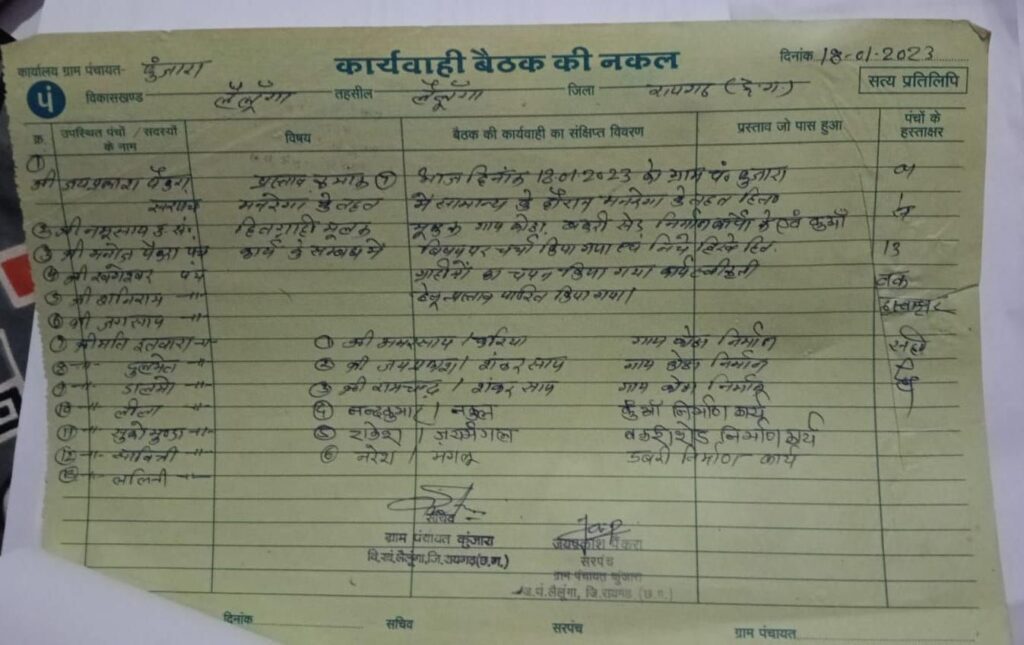 कार्यालय ग्राम पंचायत- कुंजारा
कार्यवाही बैठक की नकल
दिनांक 18-01-2023
सत्य प्रतिलिपि
पं
विकासखण्ड लैलूँगा तहसील लैलूँगा जिला रायगढ़ (छ.ग.)
क्र. उपस्थित पंचों / सदस्यों के नाम
विषय
बैठक की कार्यवाही का संक्षिप्त विवरण
प्रस्ताव जो पास हुआ
पंचों के हस्ताक्षर
① श्री जयप्रकाश पैंकरा प्रस्ताव क्रमांक ① आज दिनांक 18.01.2023 को ग्राम पं. कुंजारा
सरपंच मनरेगा के तहत में सामान्य के दौरान मनरेगा के तहत
हितग्राही मूलक मूलक गाय कोठा, बकरी सेड, निर्माण कार्यो के एवं कुआँ
③ श्री मनोज पैंकरा पंच कार्य के सम्बंध में विषय पर चर्चा किया गया 13
④ श्री खगेश्वर पंच ग्राहीयों का चयन किया गया कार्य स्वीकृती तक
⑤ श्री शनिराम -"- हेतु प्रस्ताव पारित किया गया। हस्ताक्षर
⑥ श्री जगसाय -"-
⑦ श्रीमति इतवारा -"- ① श्री अमरसाय / गाय कोठा निर्माण सही
⑧ -"- ② श्री जयप्रकाश / शंकर साय गाय कोठा निर्माण
⑨ -"- ③ श्री रामचन्द्र / शंकर साय गाय कोठा निर्माण
⑩ -"- लीला -"- ④ नन्दकुमार / नकुल कुँआ निर्माण कार्य
⑪ -"- -"- ⑤ राकेश / बकरी शेड निर्माण कार्य
⑫ -"- सावित्री -"- ⑥ नरेश / मंगलू डबरी निर्माण कार्य
⑬ -"- ललिनी -"-
सचिव
ग्राम पंचायत कुंजारा
वि.खं.लैलूंगा,जि.रायगढ़(छ.ग.)
जयप्रकाश पैंकरा
सरपंच
ग्राम पंचायत कुंजारा
ज.पं.लैलूंगा, जि.रायगढ़ (छ.ग.)
दिनांक
सचिव
सरपंच
ग्राम पंचायत